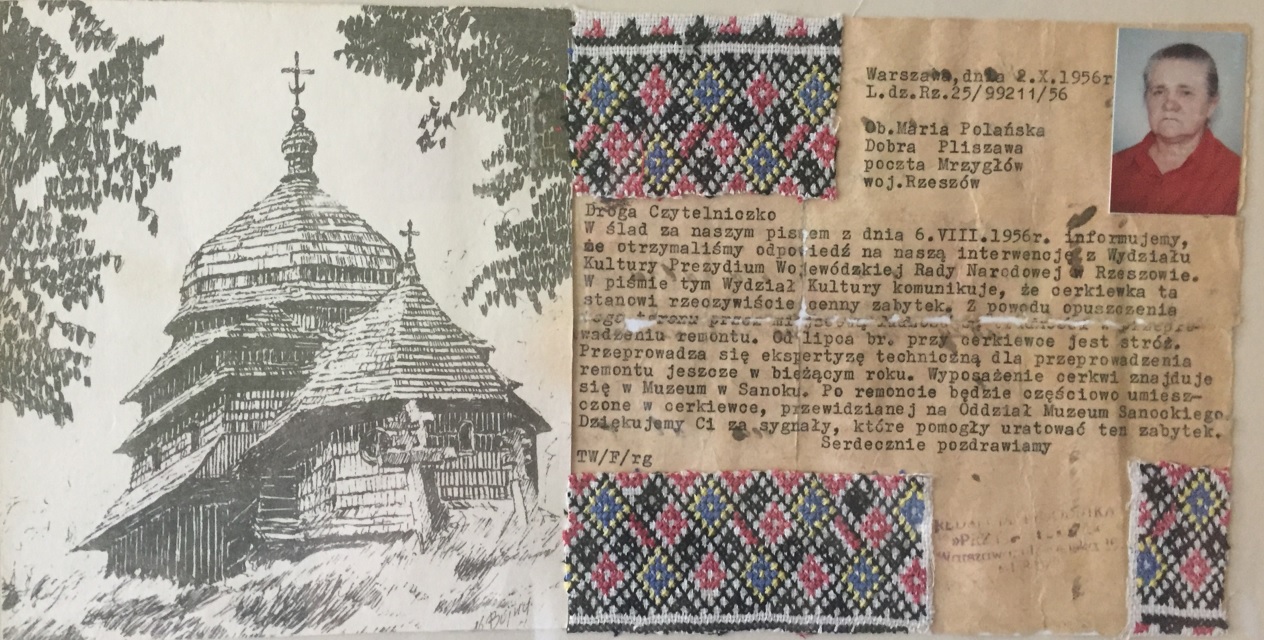 Warszawa,dnia 2.X.1956r
L.dz.Rz.25/99211/56
Ob.Maria Polańska
Dobra Pliszawa
poczta Mrzygłów
woj.Rzeszów
Droga Czytelniczko
W ślad za naszym pismem z dnia 6.VIII.1956r. informujemy,
że otrzymaliśmy odpowiedź na naszą interwencję z Wydziału
Kultury Prezydium Wojewódzkiej Rady Narodowej w Rzeszowie.
W piśmie tym Wydział Kultury komunikuje, że cerkiewka ta
stanowi rzeczywiście cenny zabytek. Z powodu opuszczenia
tego terenu przez
wadzeniu remontu. Od lipca br. przy cerkiewce jest stróż.
Przeprowadza się ekspertyzę techniczną dla przeprowadzenia
remontu jeszcze w bieżącym roku. Wyposażenie cerkwi znajduje
się w Muzeum w Sanoku. Po remoncie będzie częściowo umiesz-
czone w cerkiewce, przewidzianej na Oddział Muzeum Sanockiego.
Dziękujemy Ci za sygnały, które pomogły uratować ten zabytek.
Serdecznie pozdrawiamy
TW/F/rg